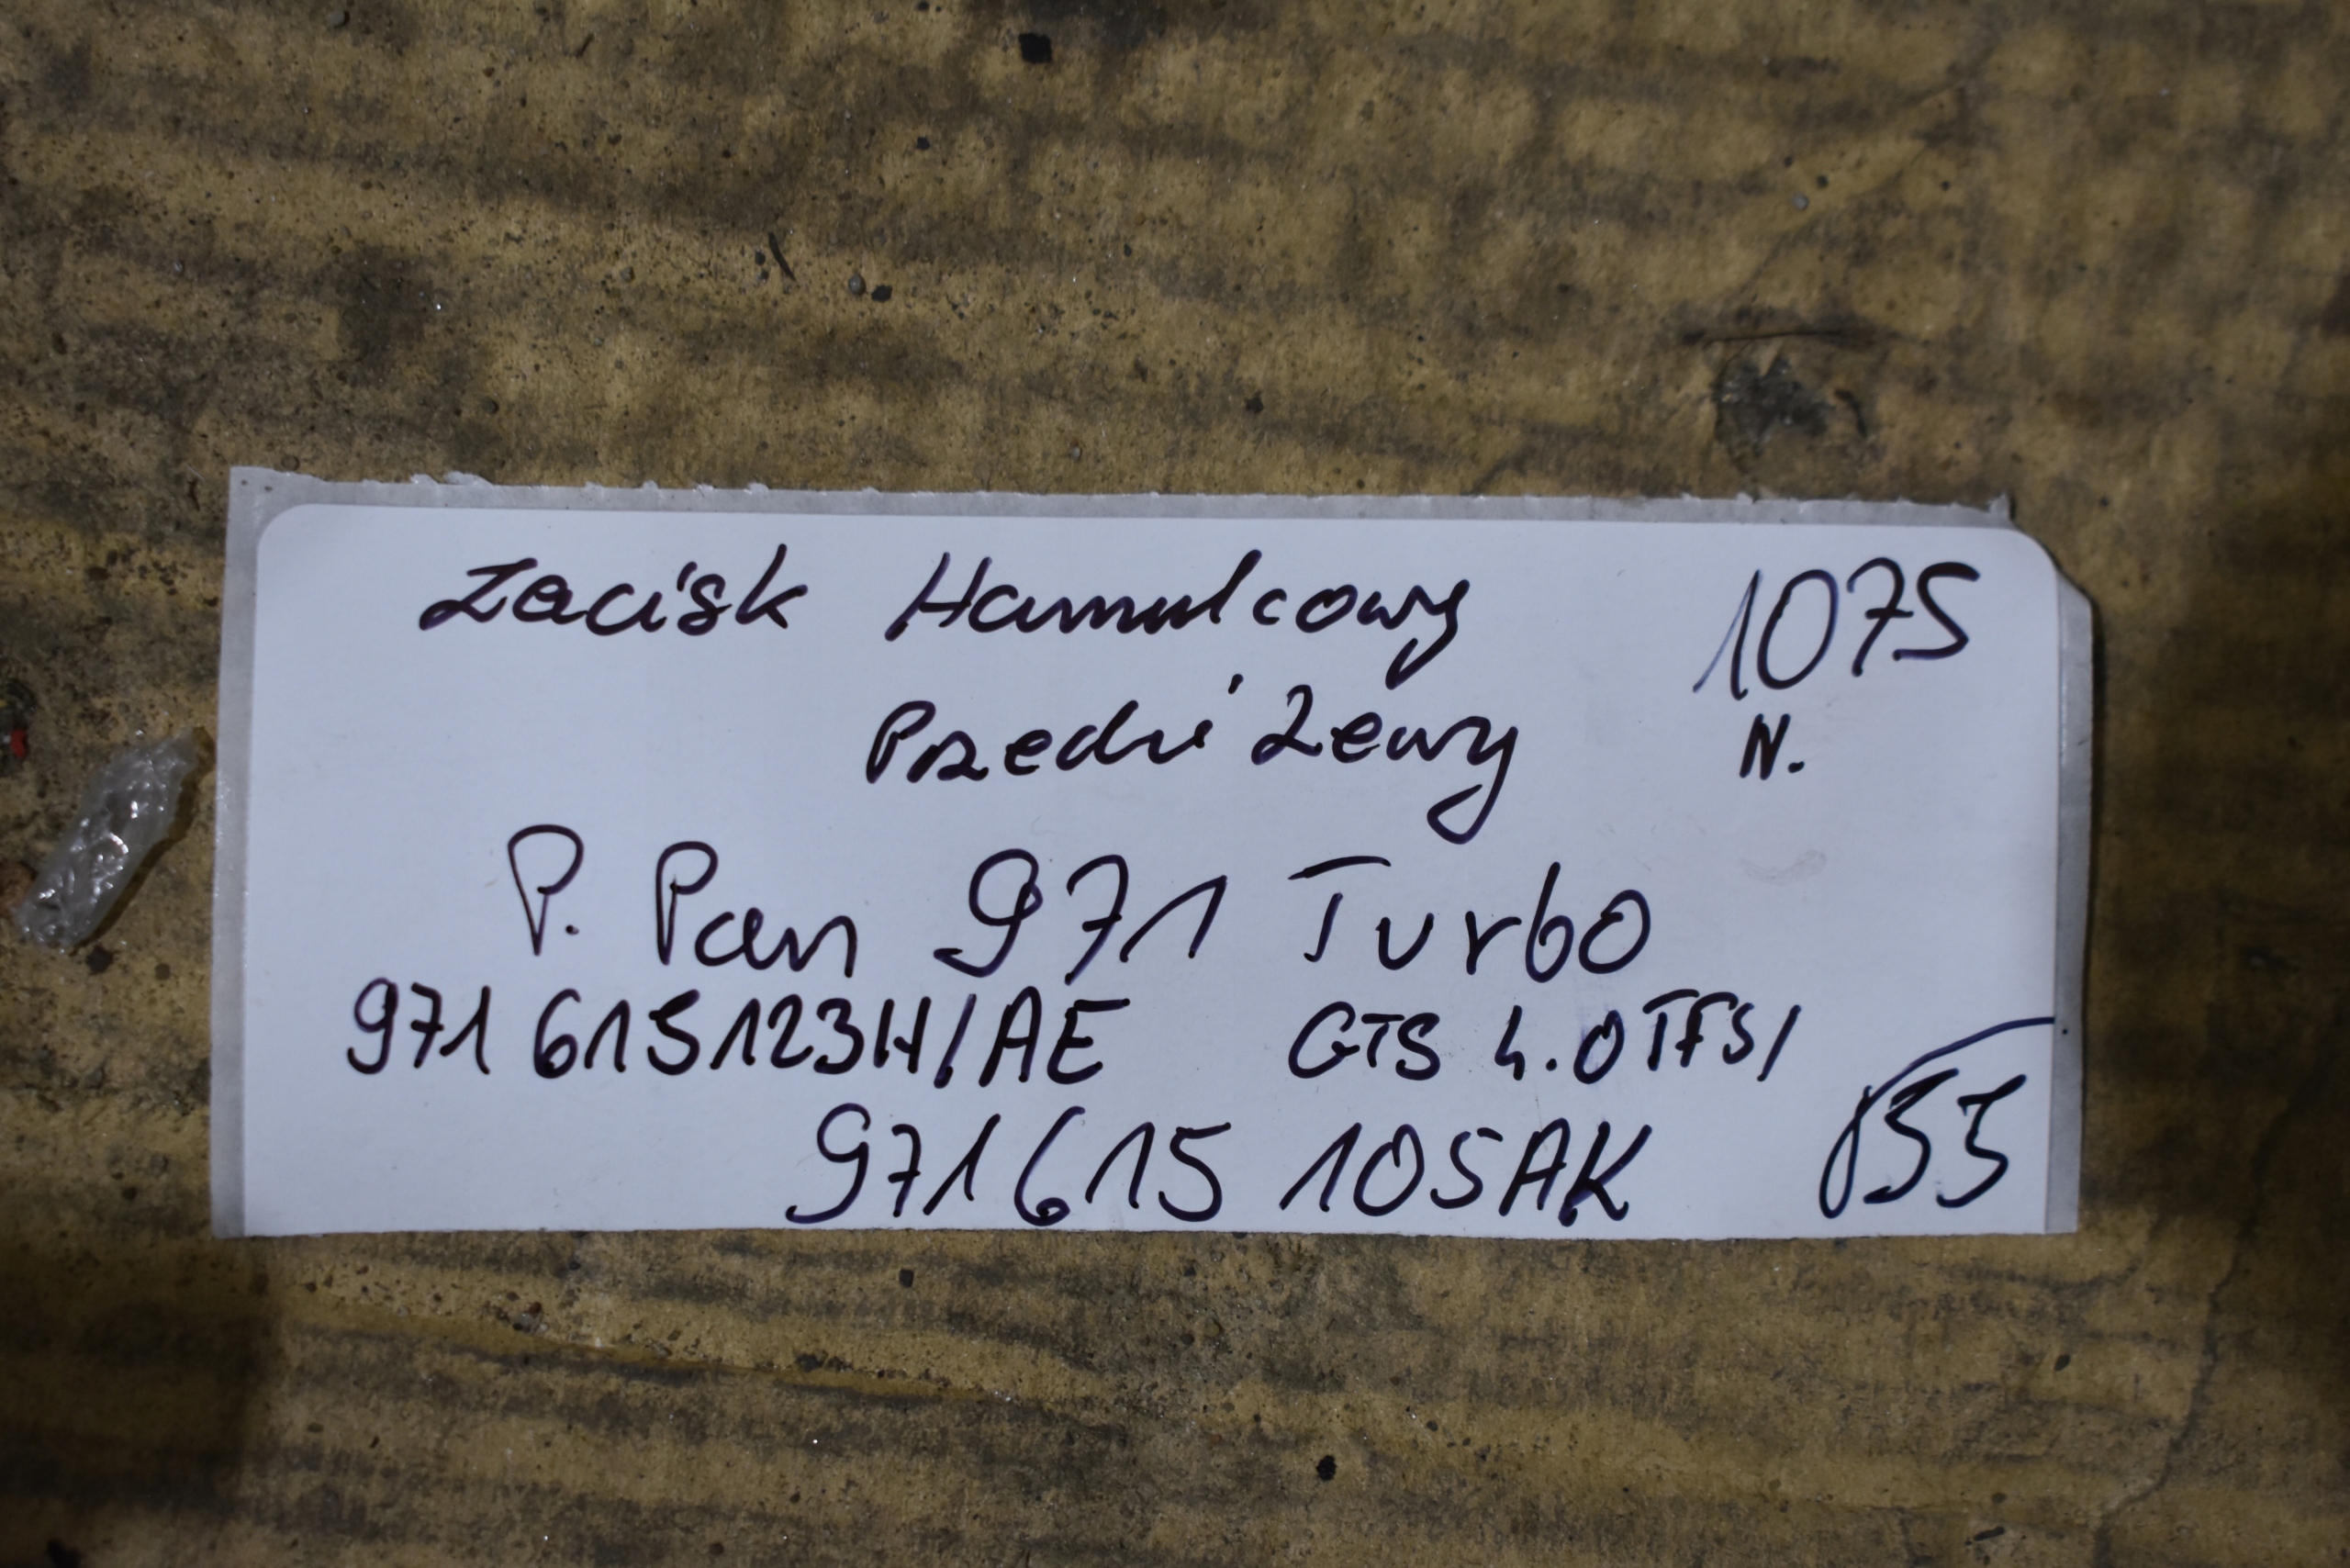 Zacisk Hamulcowy 1075
Przedni Lewy N.
P. Pan 971 Turbo
971 615123H/AE GTS 4.0 TFSI
971615 105AK